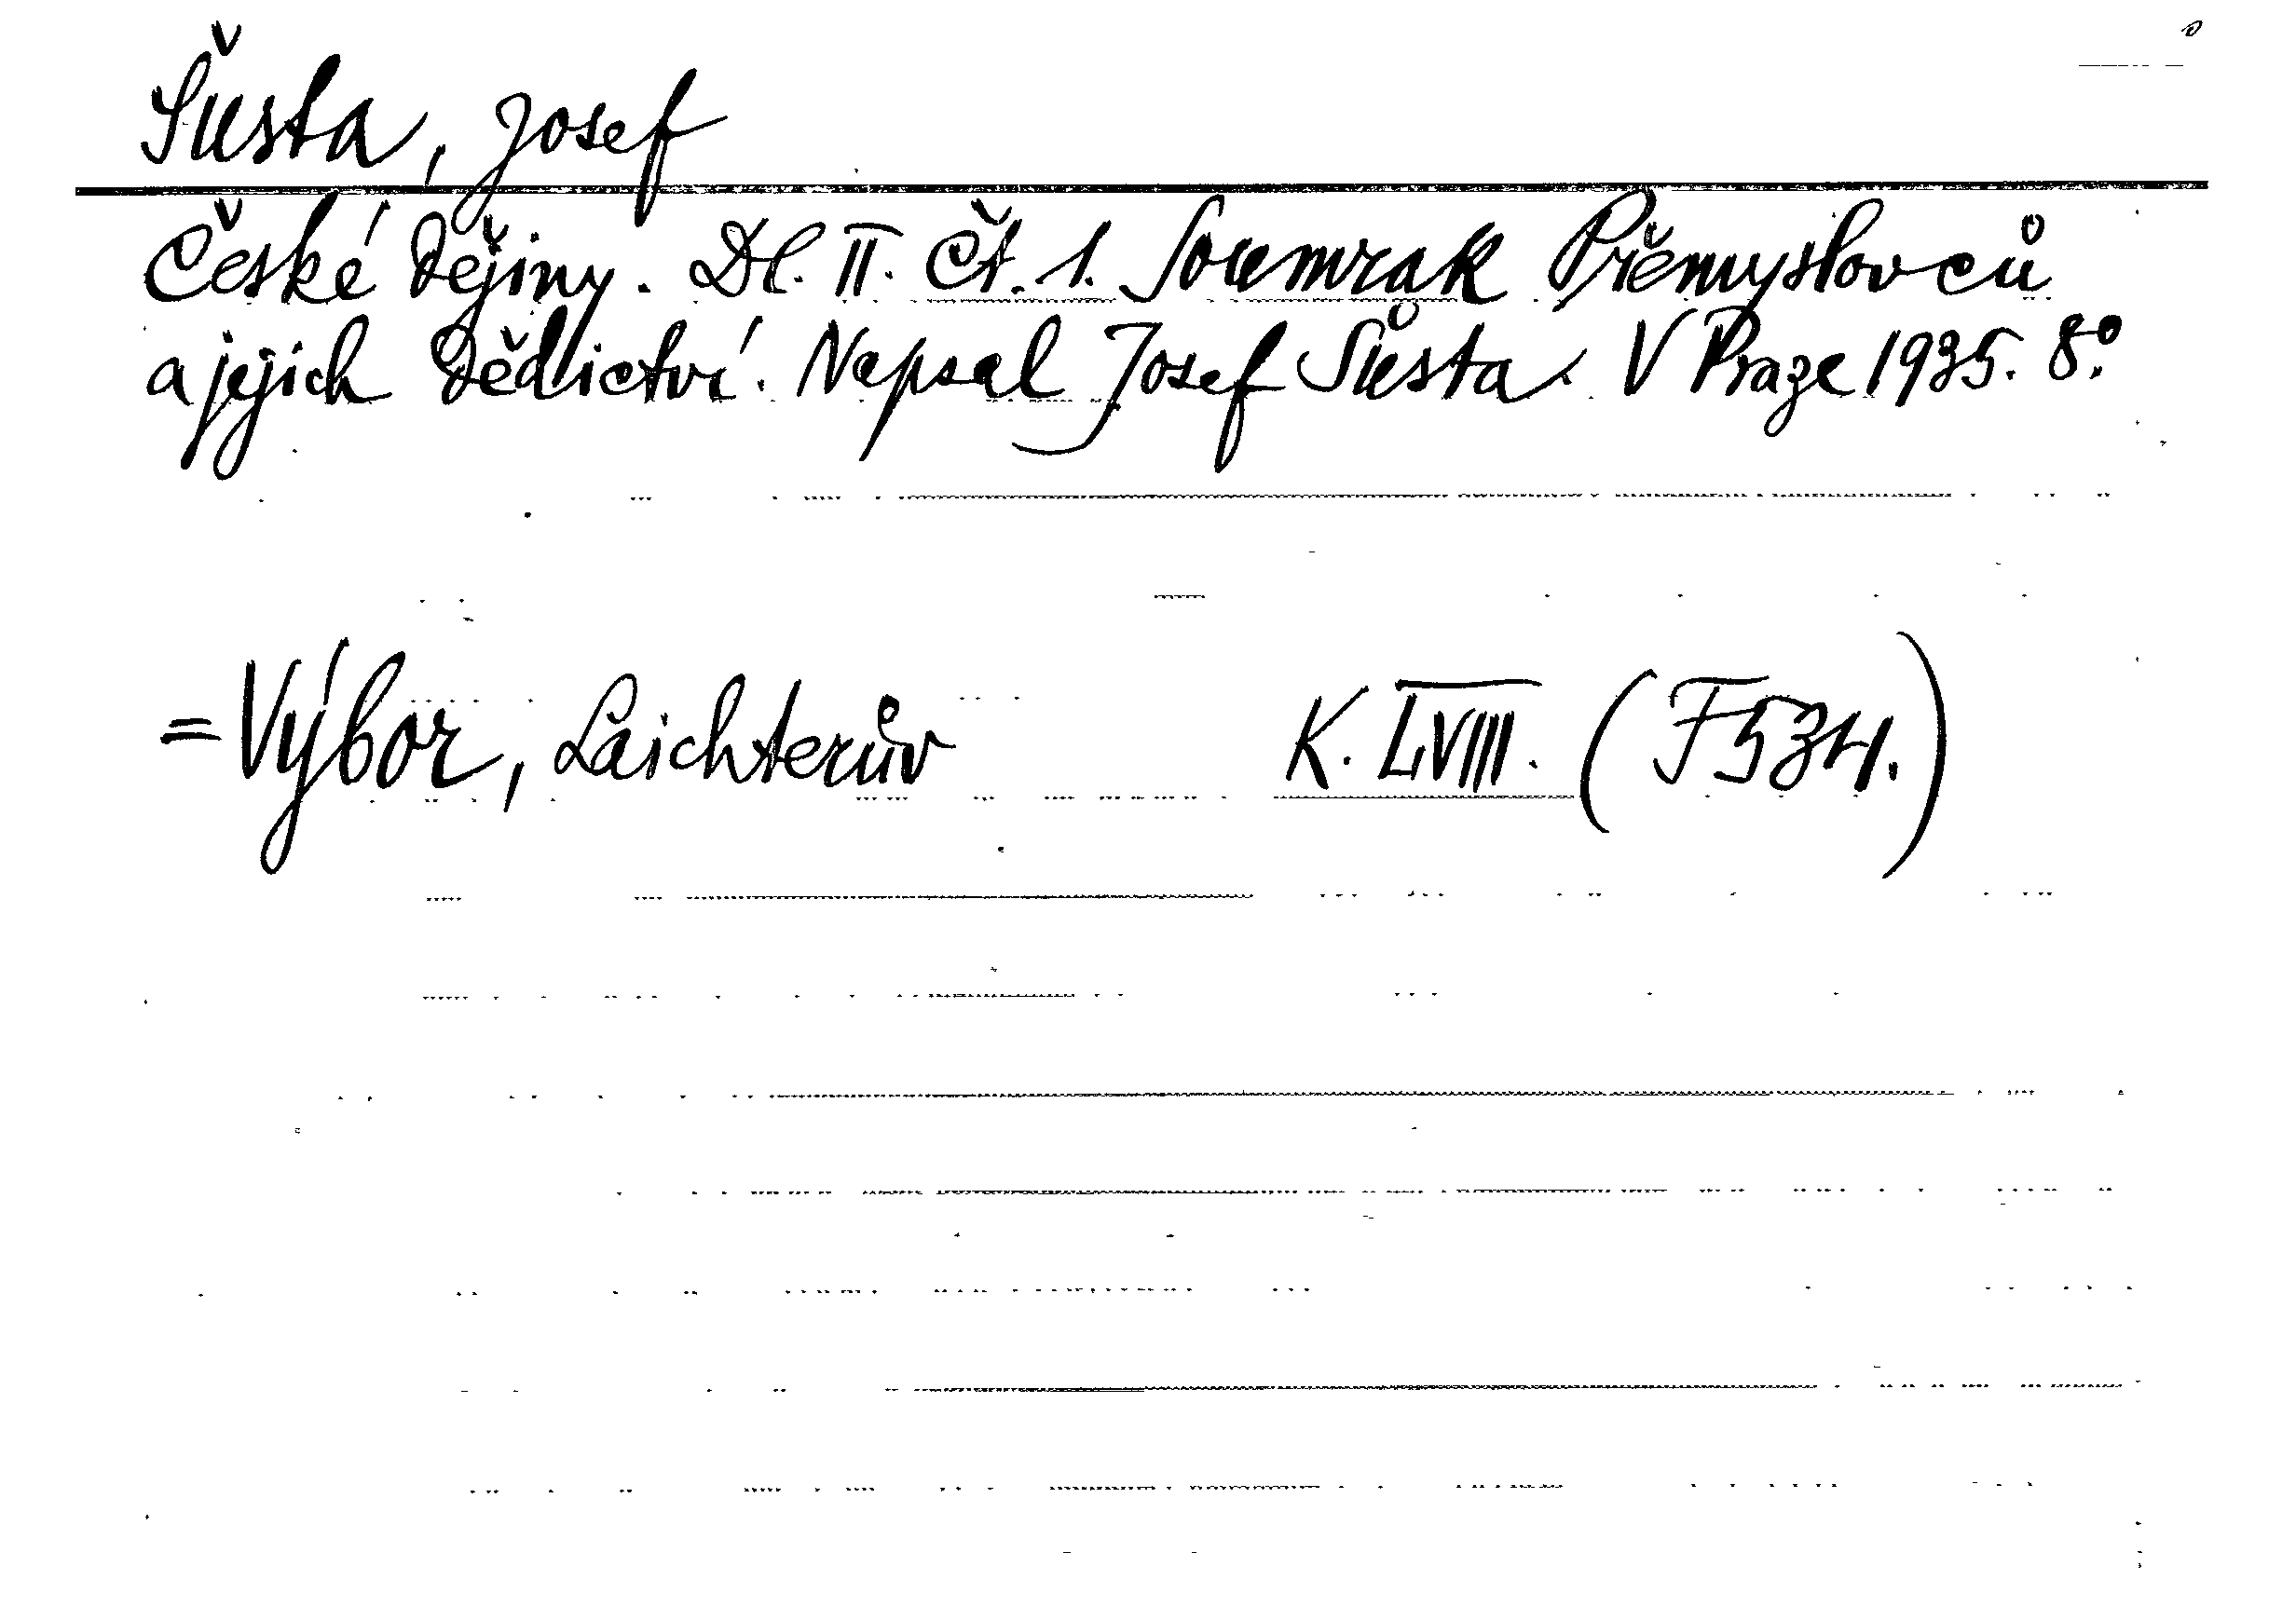 Šusta, Josef
České dějiny. Dl. II. Čt. 1. Soumrak Přemyslovců
a jejich dědictví. Napsal Josef Šusta. V Praze 1935. 8.°
= Výbor, Laichterův K. LVIII. (F534.)